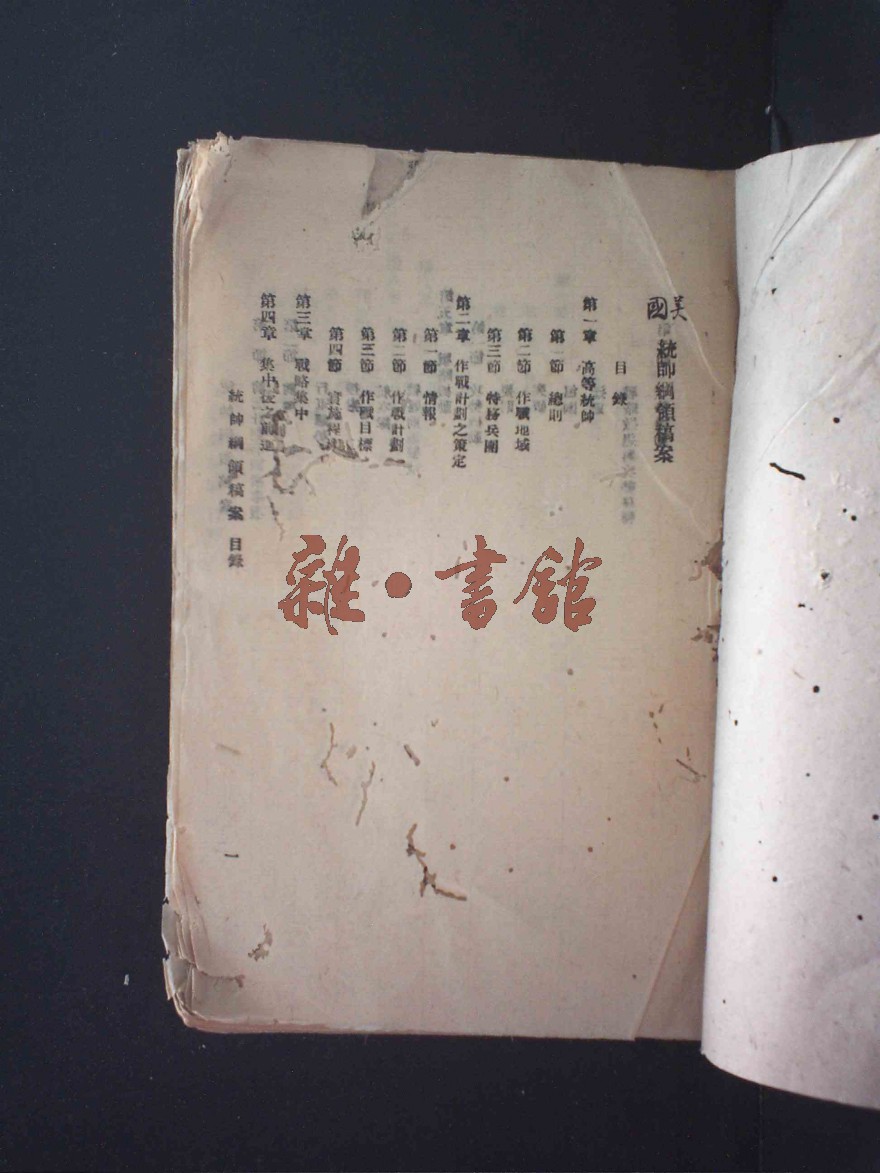 美國
統帥綱領稿案
目錄
第一章 高等統帥
第一節 總則
第二節 作戰地域
第三節 特務兵團
第二章 作戰計劃之策定
第一節 情報
第二節 作戰計劃
第三節 作戰目標
第四節 實施
第三章 戰略集中
第四章 集中後之前進
統帥綱領稿案 目錄
一
雜·書館